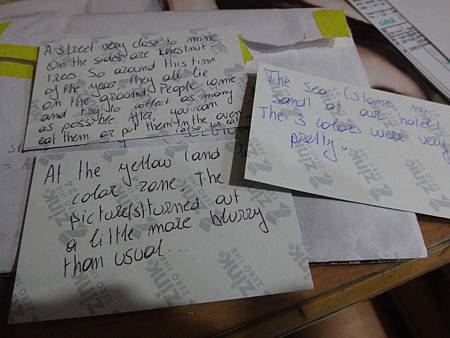 A street very close to mine
On the sides are chestnut
trees. So around this time
of the year, they all lie
on the ground. People come
and try to collect as many
as possible. After, you can
eat them or put them in the oven
(also eat
The sea: (stone, no
sand) at our hotel
The 3 colors were very
pretty..
At the yellow (and
color zone. The
picture(s) turned out
a little more blurry
than usual...
zink
ZERO INK